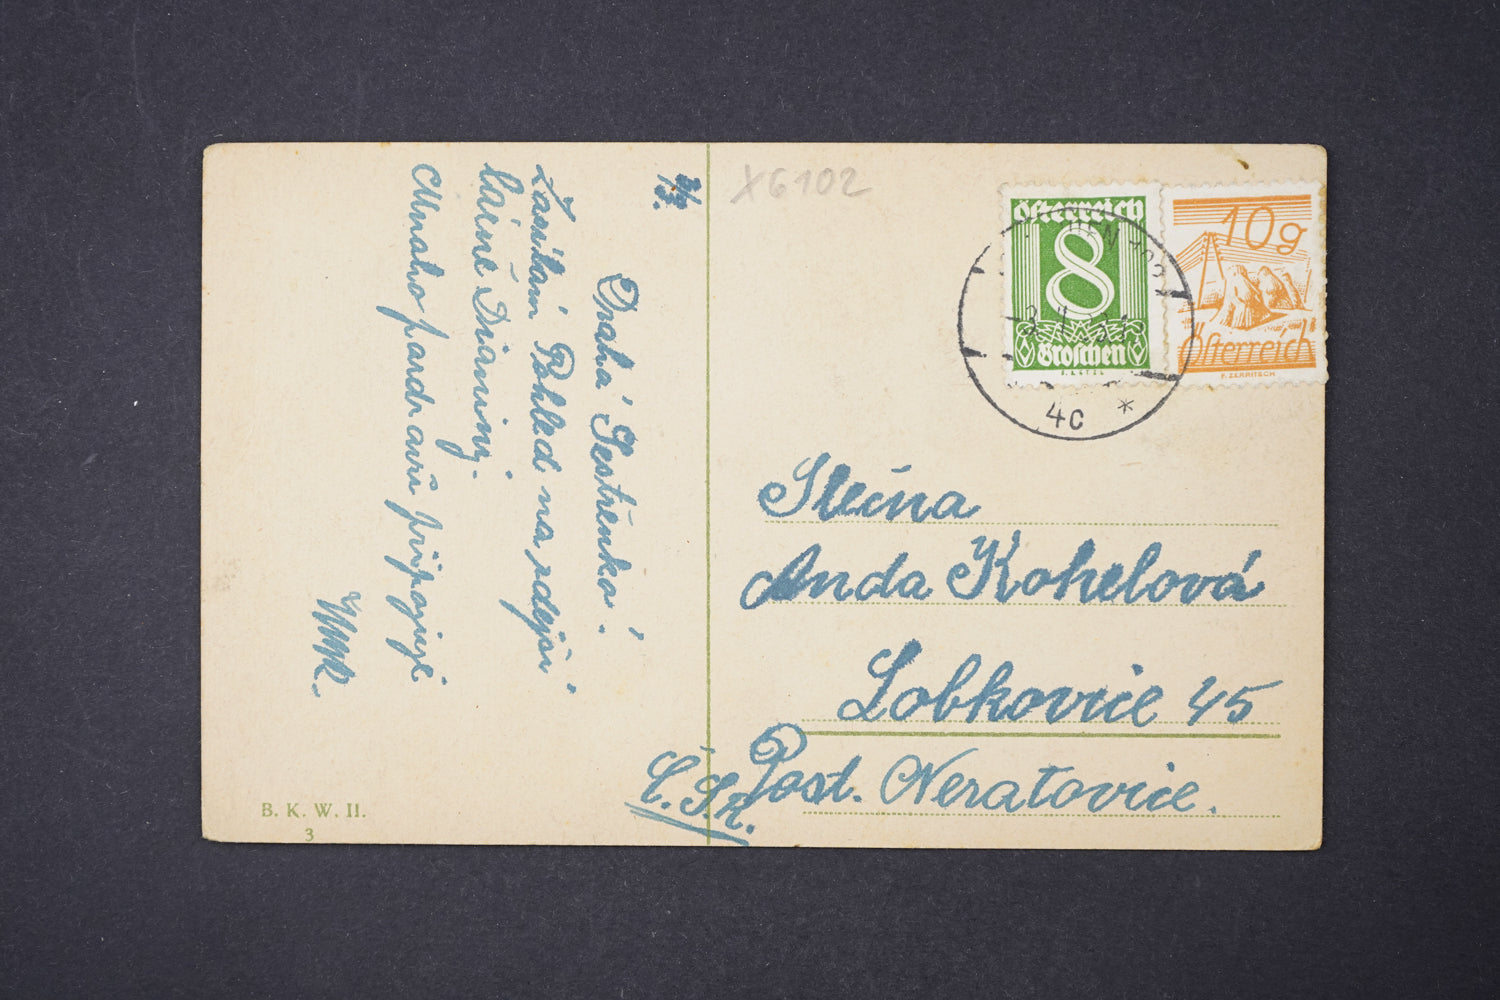 X6102
Drahá Sestřenko!
Zasílám Pohled na zdejší
Mnoho pozdravů připojuje
Slečna
Anda Kohelová
Lobkovice 45
Post. Neratovice.
Č.S.R.
Österreich
8
Groschen
10g
Österreich
F. ZERRITSCH
4c *
B. K. W. II.
3